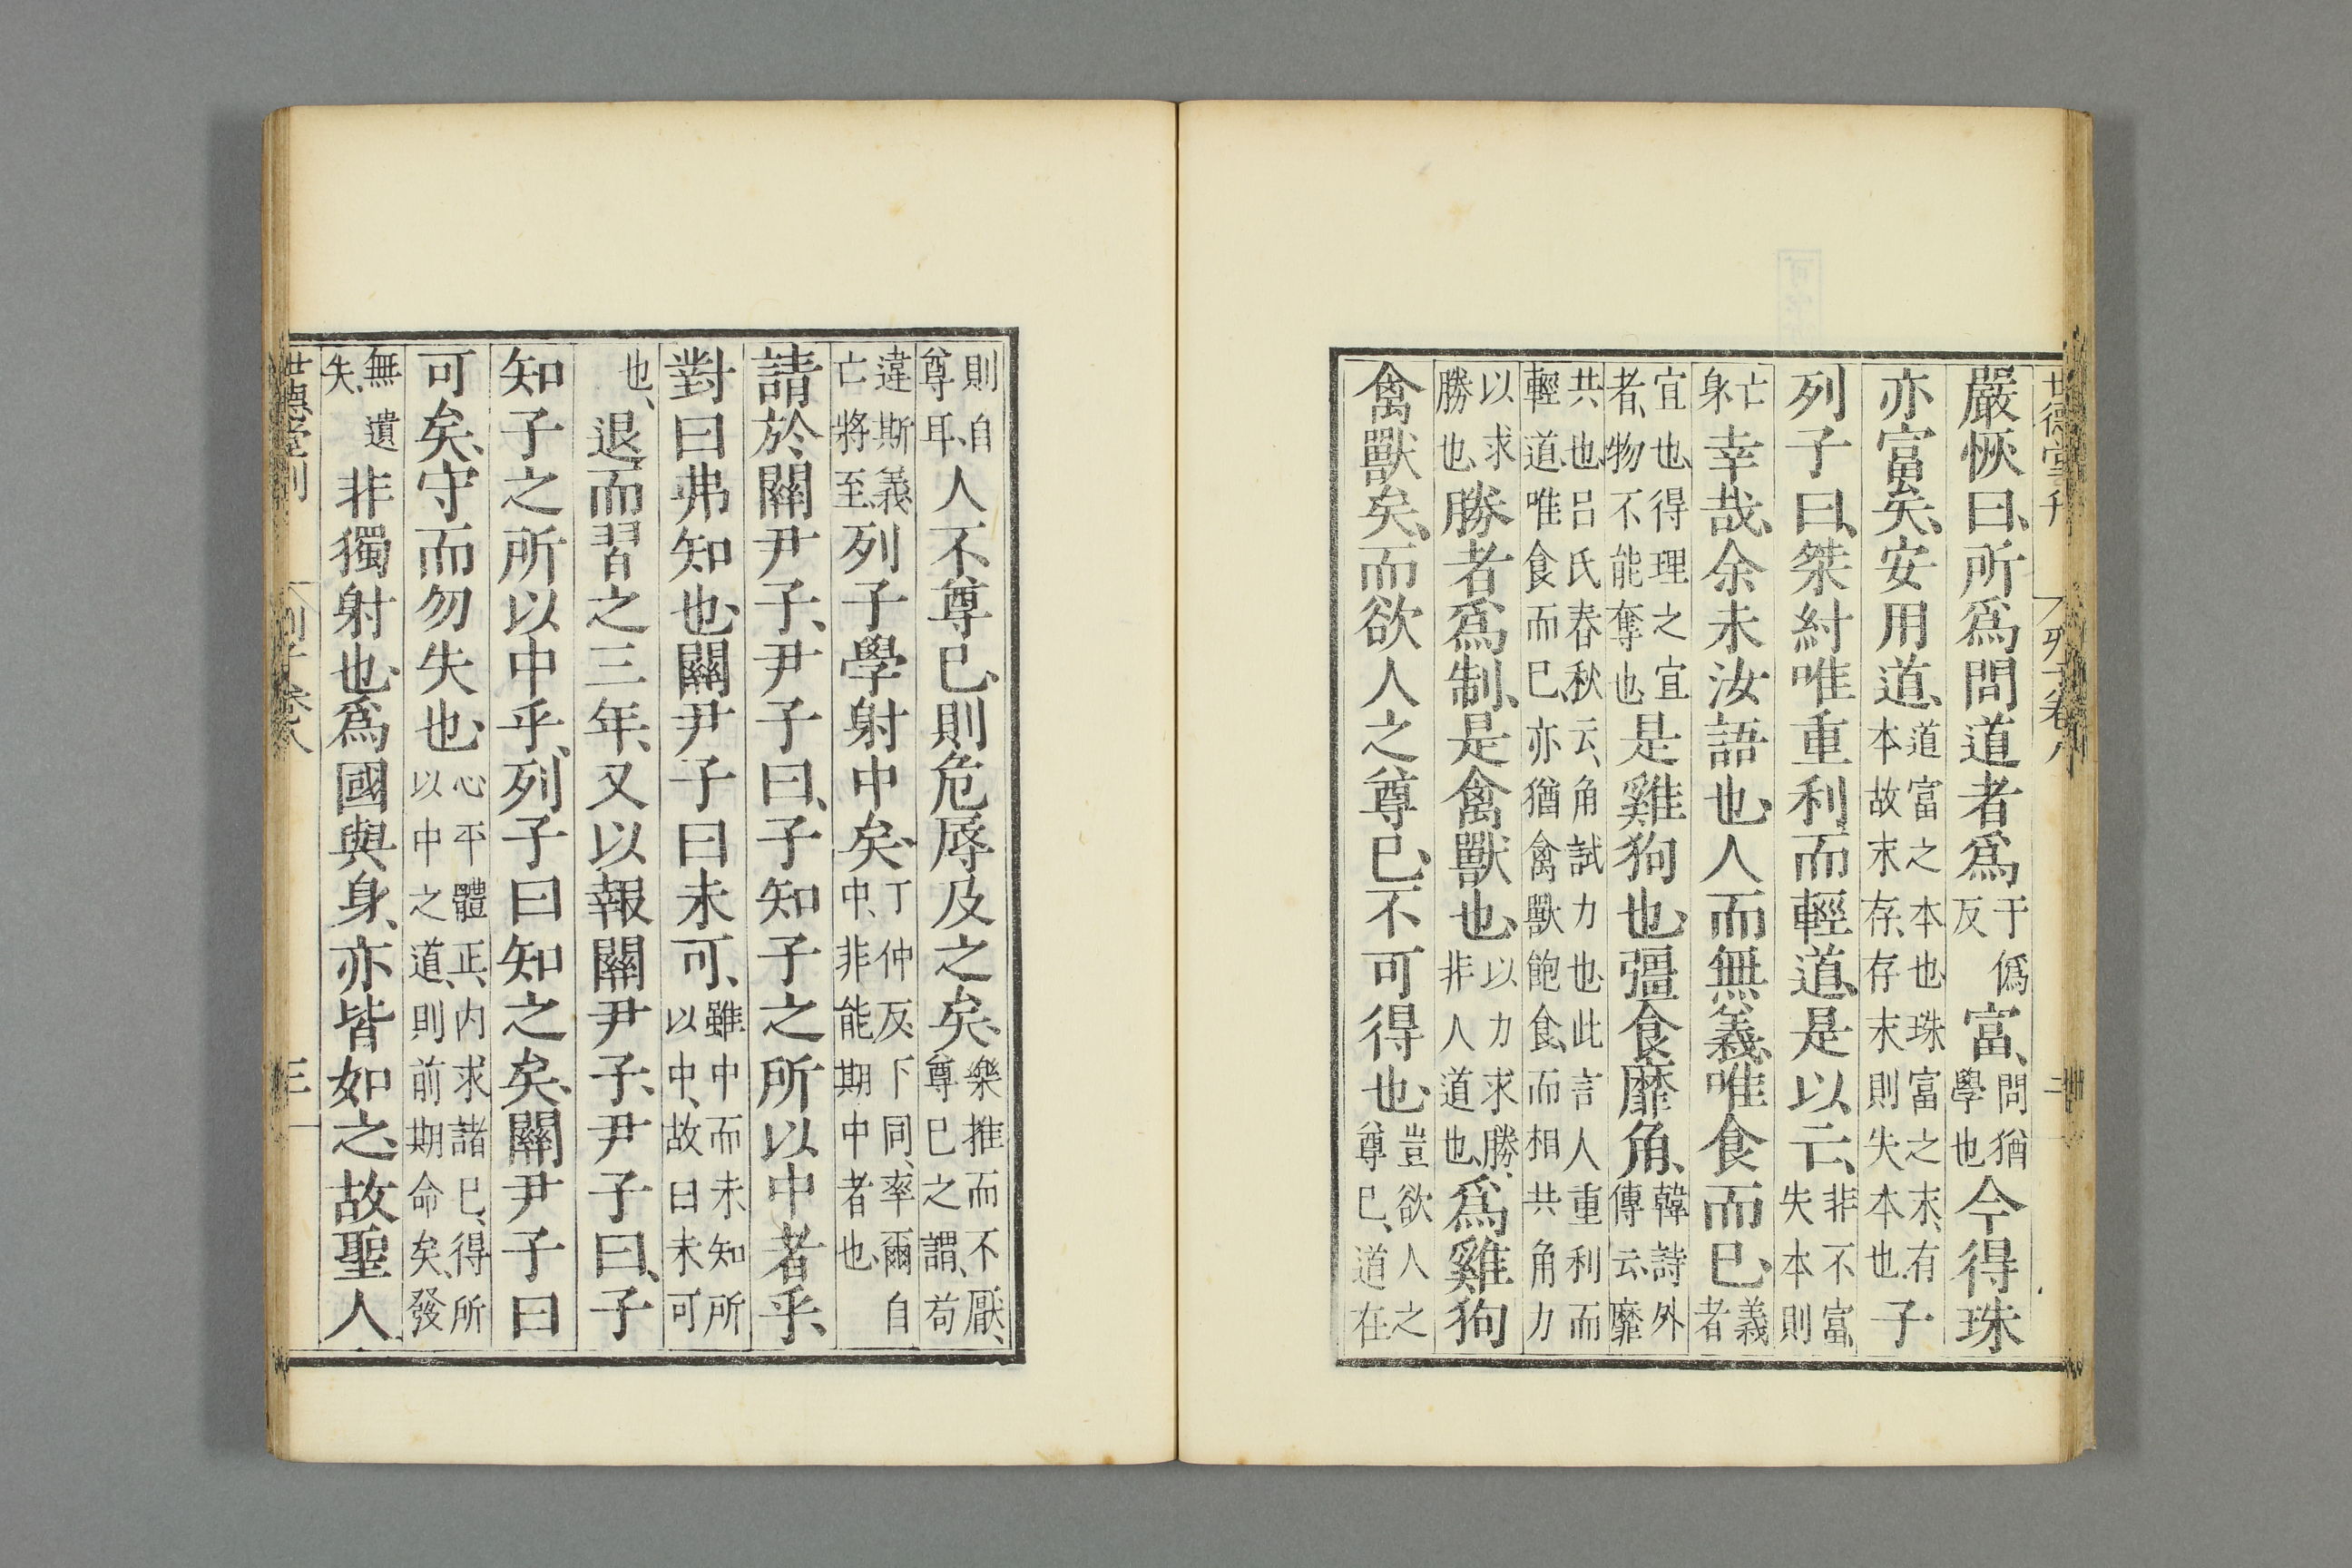 世德堂刊 列子卷八 二
嚴恢曰、所爲問道者爲于僞反富、問猶學也今得珠
亦富矣、安用道、道富之本也、珠富之末、有本故末存、存末則失本也、子
列子曰、桀紂唯重利而輕道、是以亡、非不富、失本則
亡身幸哉、余未汝語也、人而無義、唯食而已、義者
宜也、得理之宜者、物不能奪也、是雞狗也、彊食靡角、韓詩外傳云、靡
共也、呂氏春秋云、角試力也、此言人重利而輕道、唯食而已、亦猶禽獸飽食、而相共角力
以求勝也、勝者爲制、是禽獸也、以力求勝、非人道也、爲雞狗
禽獸矣、而欲人之尊已、不可得也、豈欲人之尊已、道在
則自尊耳、人不尊已、則危辱及之矣、樂推而不厭、尊已之謂、苟
違斯義、亡將至、列子學射中矣、丁仲反、下同、率爾自中、非能期中者也、
請於關尹子、尹子曰、子知子之所以中者乎、
對曰弗知也、關尹子曰未可、雖中而未知所以中、故曰未可
也、退而習之三年、又以報關尹子、尹子曰、子
知子之所以中乎、列子曰知之矣、關尹子曰
可矣、守而勿失也、心平體正、內求諸已、得所以中之道、則前期命矣、發
無遺失、非獨射也、爲國與身、亦皆如之、故聖人
世德堂刊 列子卷八 三